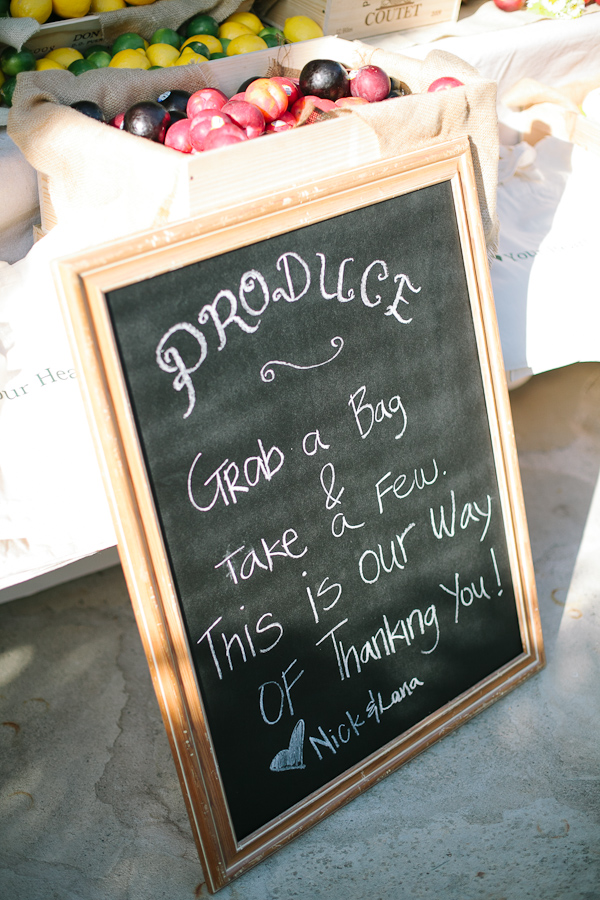 DON
COUTET
PRODUCE
Grab a Bag
&
Take a Few.
This is our Way
OF Thanking You!
Nick & Lana
our Hea
You